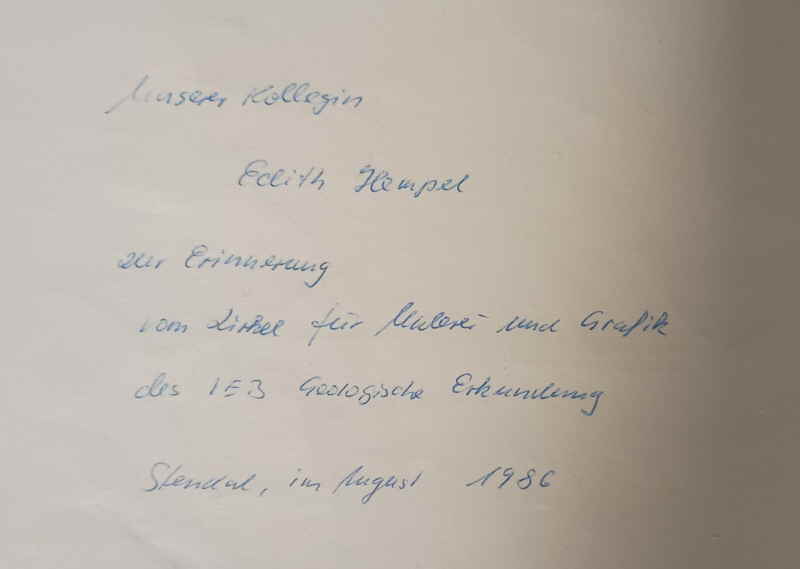 Unserer Kollegin
Edith Hempel
zur Erinnerung
vom Zirkel für Malerei und Grafik
des VEB Geologische Erkundung
Stendal, im August 1986